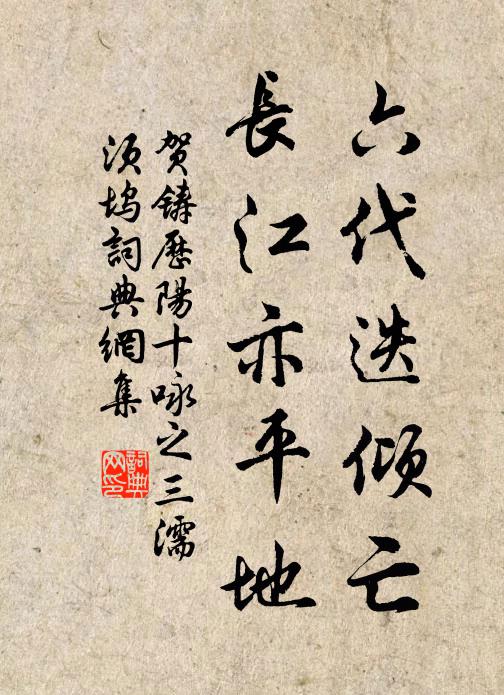 六代迭傾亡
長江亦平地
賀鑄歷陽十咏之三濡
須塢詞典網集
詞典
网印